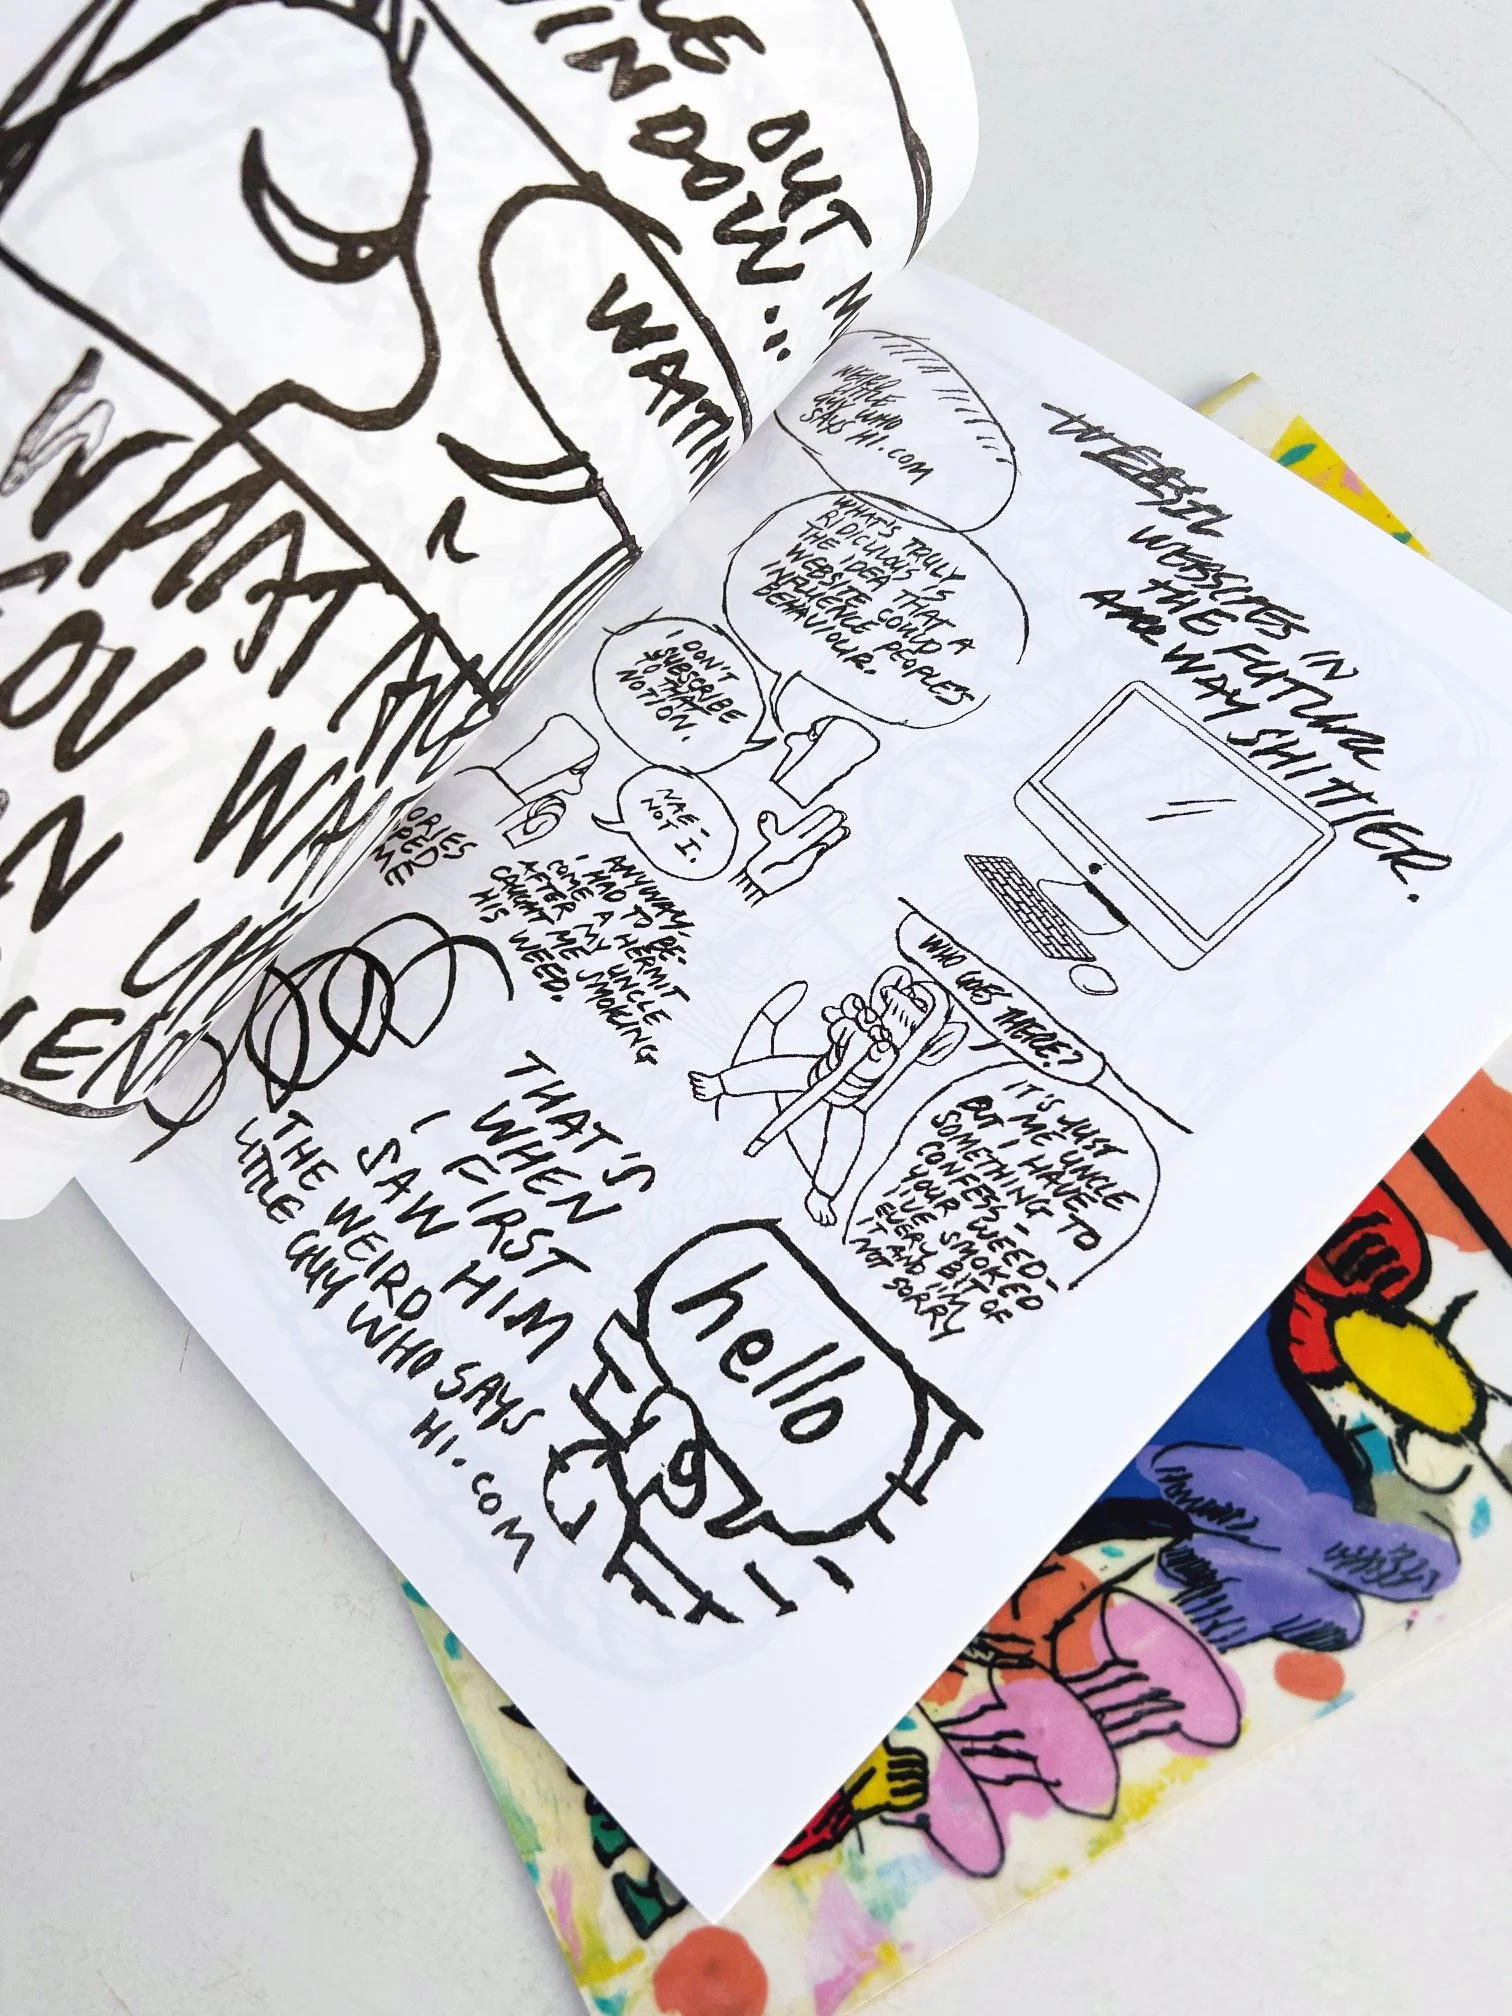 OUT M
WINDOW...
WAITIN
WHAT
YOU WA
WEIRD
LITTLE
GUY WHO
SAYS HI.COM
WEBSIL
WEBSITES IN
THE FUTURE
ARE WAY SHITTIER.
WHAT'S TRULY
RIDICULOUS IS
THE IDEA THAT A
WEBSITE COULD
INFLUENCE PEOPLE'S
BEHAVIOUR.
I DON'T
SUBSCRIBE
TO THAT
NOTION.
NAE I.
NOT I.
ORIES
PED
ME
ANYWAY-
I HAD TO BE-
COME A HERMIT
AFTER MY UNCLE
CAUGHT ME SMOKING
HIS WEED.
WHO GOES THERE?
IT'S JUST
ME UNCLE
BUT I HAVE
SOMETHING TO
CONFESS-
YOUR WEED-
I'VE SMOKED
EVERY BIT OF
IT AND I'M
NOT SORRY
THAT'S
WHEN
I FIRST
SAW HIM
THE WEIRD
LITTLE GUY WHO SAYS
HI.COM
hello